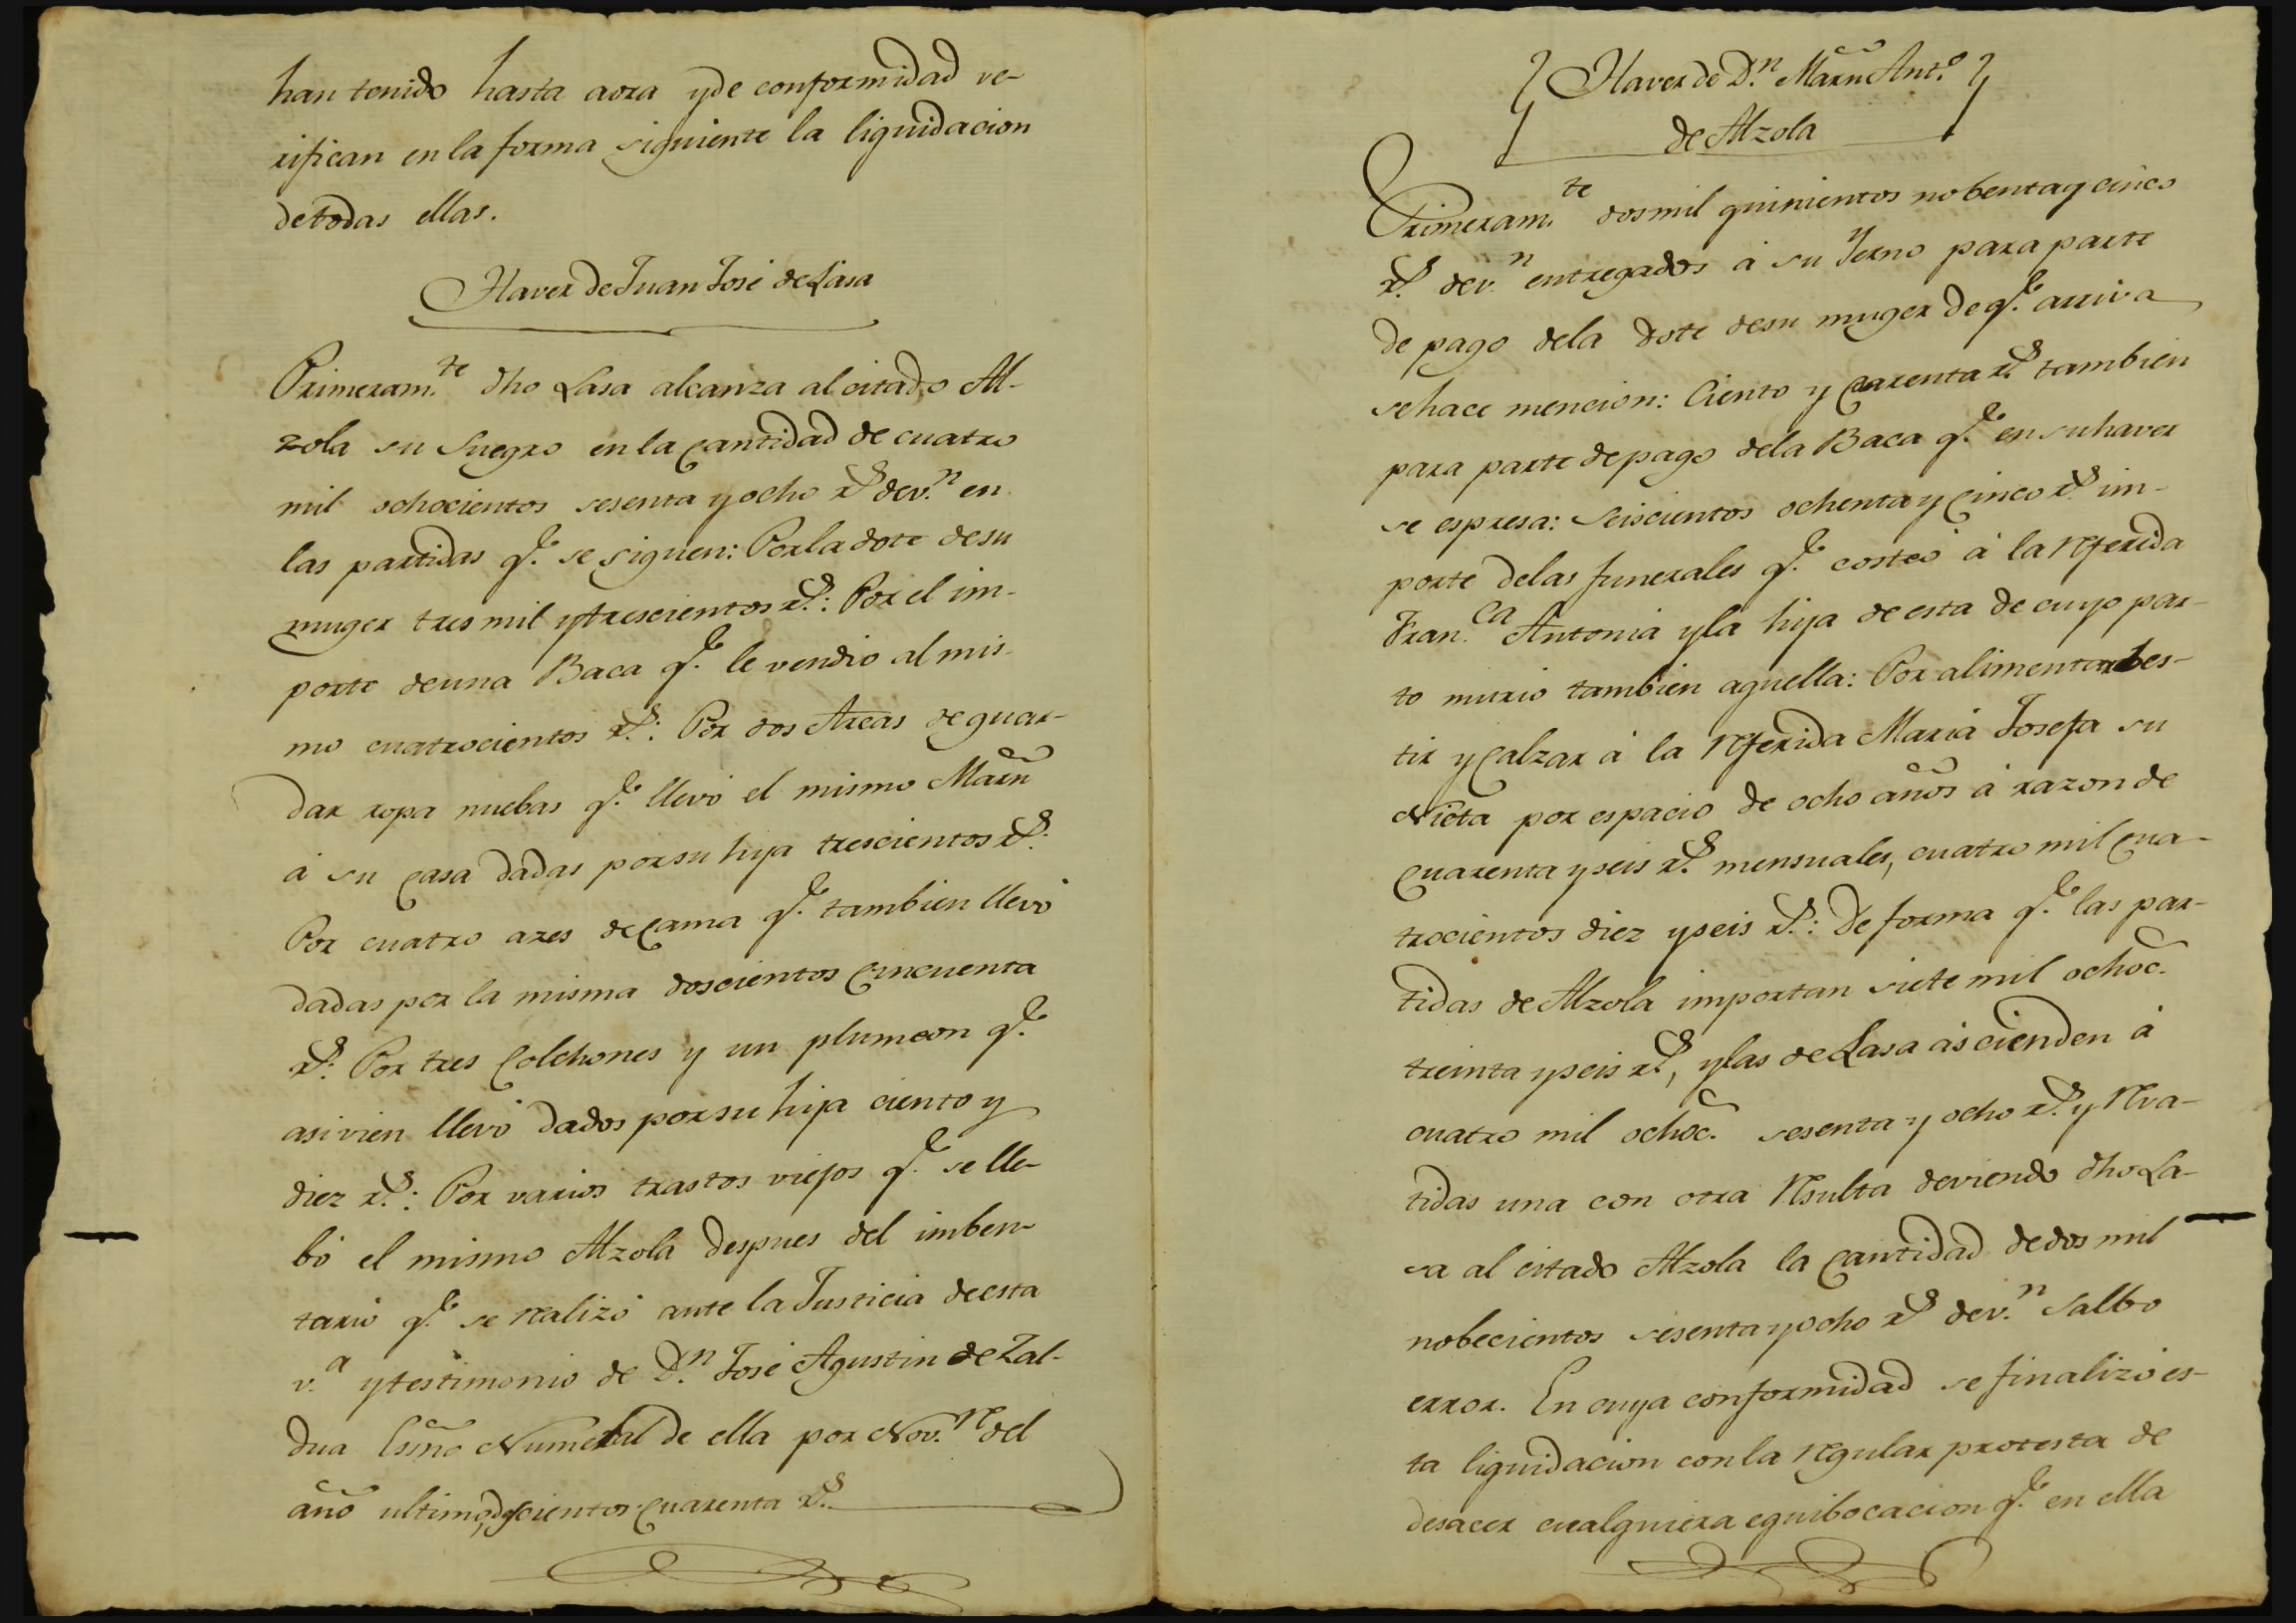 han tenido hasta aora y de conformidad ve-
rifican en la forma siguiente la liquidacion
de todas ellas.
Haver de Juan José de Lasa
Primeram.te dho Lasa alcanza al citado Al-
zola su Suegro en la Cantidad de cuatro
mil ochocientos sesenta y ocho r.s de v.n en
las partidas q.e se siguen: Por la dote de su
muger tres mil y trescientos r.s: Por el im-
porte de una Baca q.e le vendio al mis-
mo cuatrocientos r.s: Por dos Arcas de guar-
dar ropa nuebas q.e llevó el mismo Marñ
á su Casa dadas por su hija trescientos r.s:
Por cuatro azes de Cama q.e tambien llevó
dadas por la misma doscientos Cincuenta
r.s: Por tres Colchones y un plumeon q.e
asi vien llevó dados por su hija ciento y
diez r.s: Por varios trastos viejos q.e se lle-
bó el mismo Alzola despues del imben-
tario q.e se realizó ante la Justicia de esta
v.a y testimonio de D.n José Agustin de Zal-
dua Esño Numeral de ella por Nov.re del
año ultimo, doscientos Cuarenta r.s
Haver de D.n Marñ Ant.o
de Alzola
Primeram.te dos mil quinientos nobenta y cinco
r.s de v.n entregados á su Yerno para parte
de pago de la dote de su muger de q.e arriva
se hace mencion: Ciento y Cuarenta r.s tambien
para parte de pago de la Baca q.e en su haver
se espresa: Seiscientos ochenta y Cinco r.s im-
porte de las funerales q.e costeó á la referida
Fran.ca Antonia y la hija de esta de cuyo par-
to murio tambien aquella: Por alimentar bes-
tir y Calzar á la referida Maria Josefa su
Nieta por espacio de ocho años á razon de
Cuarenta y seis r.s mensuales, cuatro mil Cua-
trocientos diez y seis r.s: De forma q.e las par-
tidas de Alzola importan siete mil ochoc.
treinta y seis r.s, y las de Lasa áscienden á
cuatro mil ochoc. sesenta y ocho r.s y reva-
tidas una con otra resulta deviendo dho La-
sa al citado Alzola la Cantidad de dos mil
nobecientos sesenta y ocho r.s de v.n Salbo
error. En cuya conformidad se finalizó es-
ta liquidacion con la regular protesta de
desacer cualquiera equibocacion q.e en ella